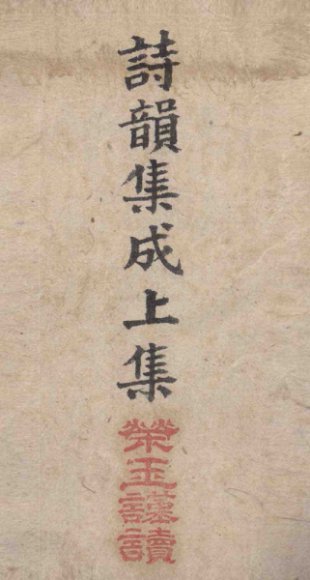 詩韻集成上集
榮玉謹讀